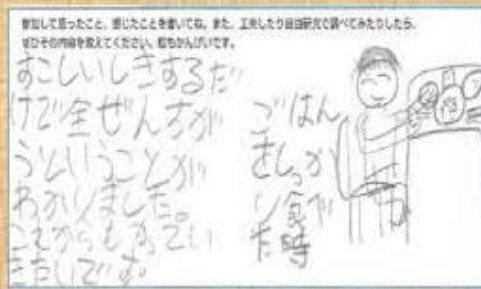 参加して思ったこと、感じたことを書いてね。また、工夫したり自由研究で調べてみたりしたら、
ぜひその内容を教えてください。絵もかんげいです。
すこしいしきするだ
けで全ぜんちが
うということが
わかりました。
これからもやってい
きたいです
ごはん
をしっか
り食べ
た時